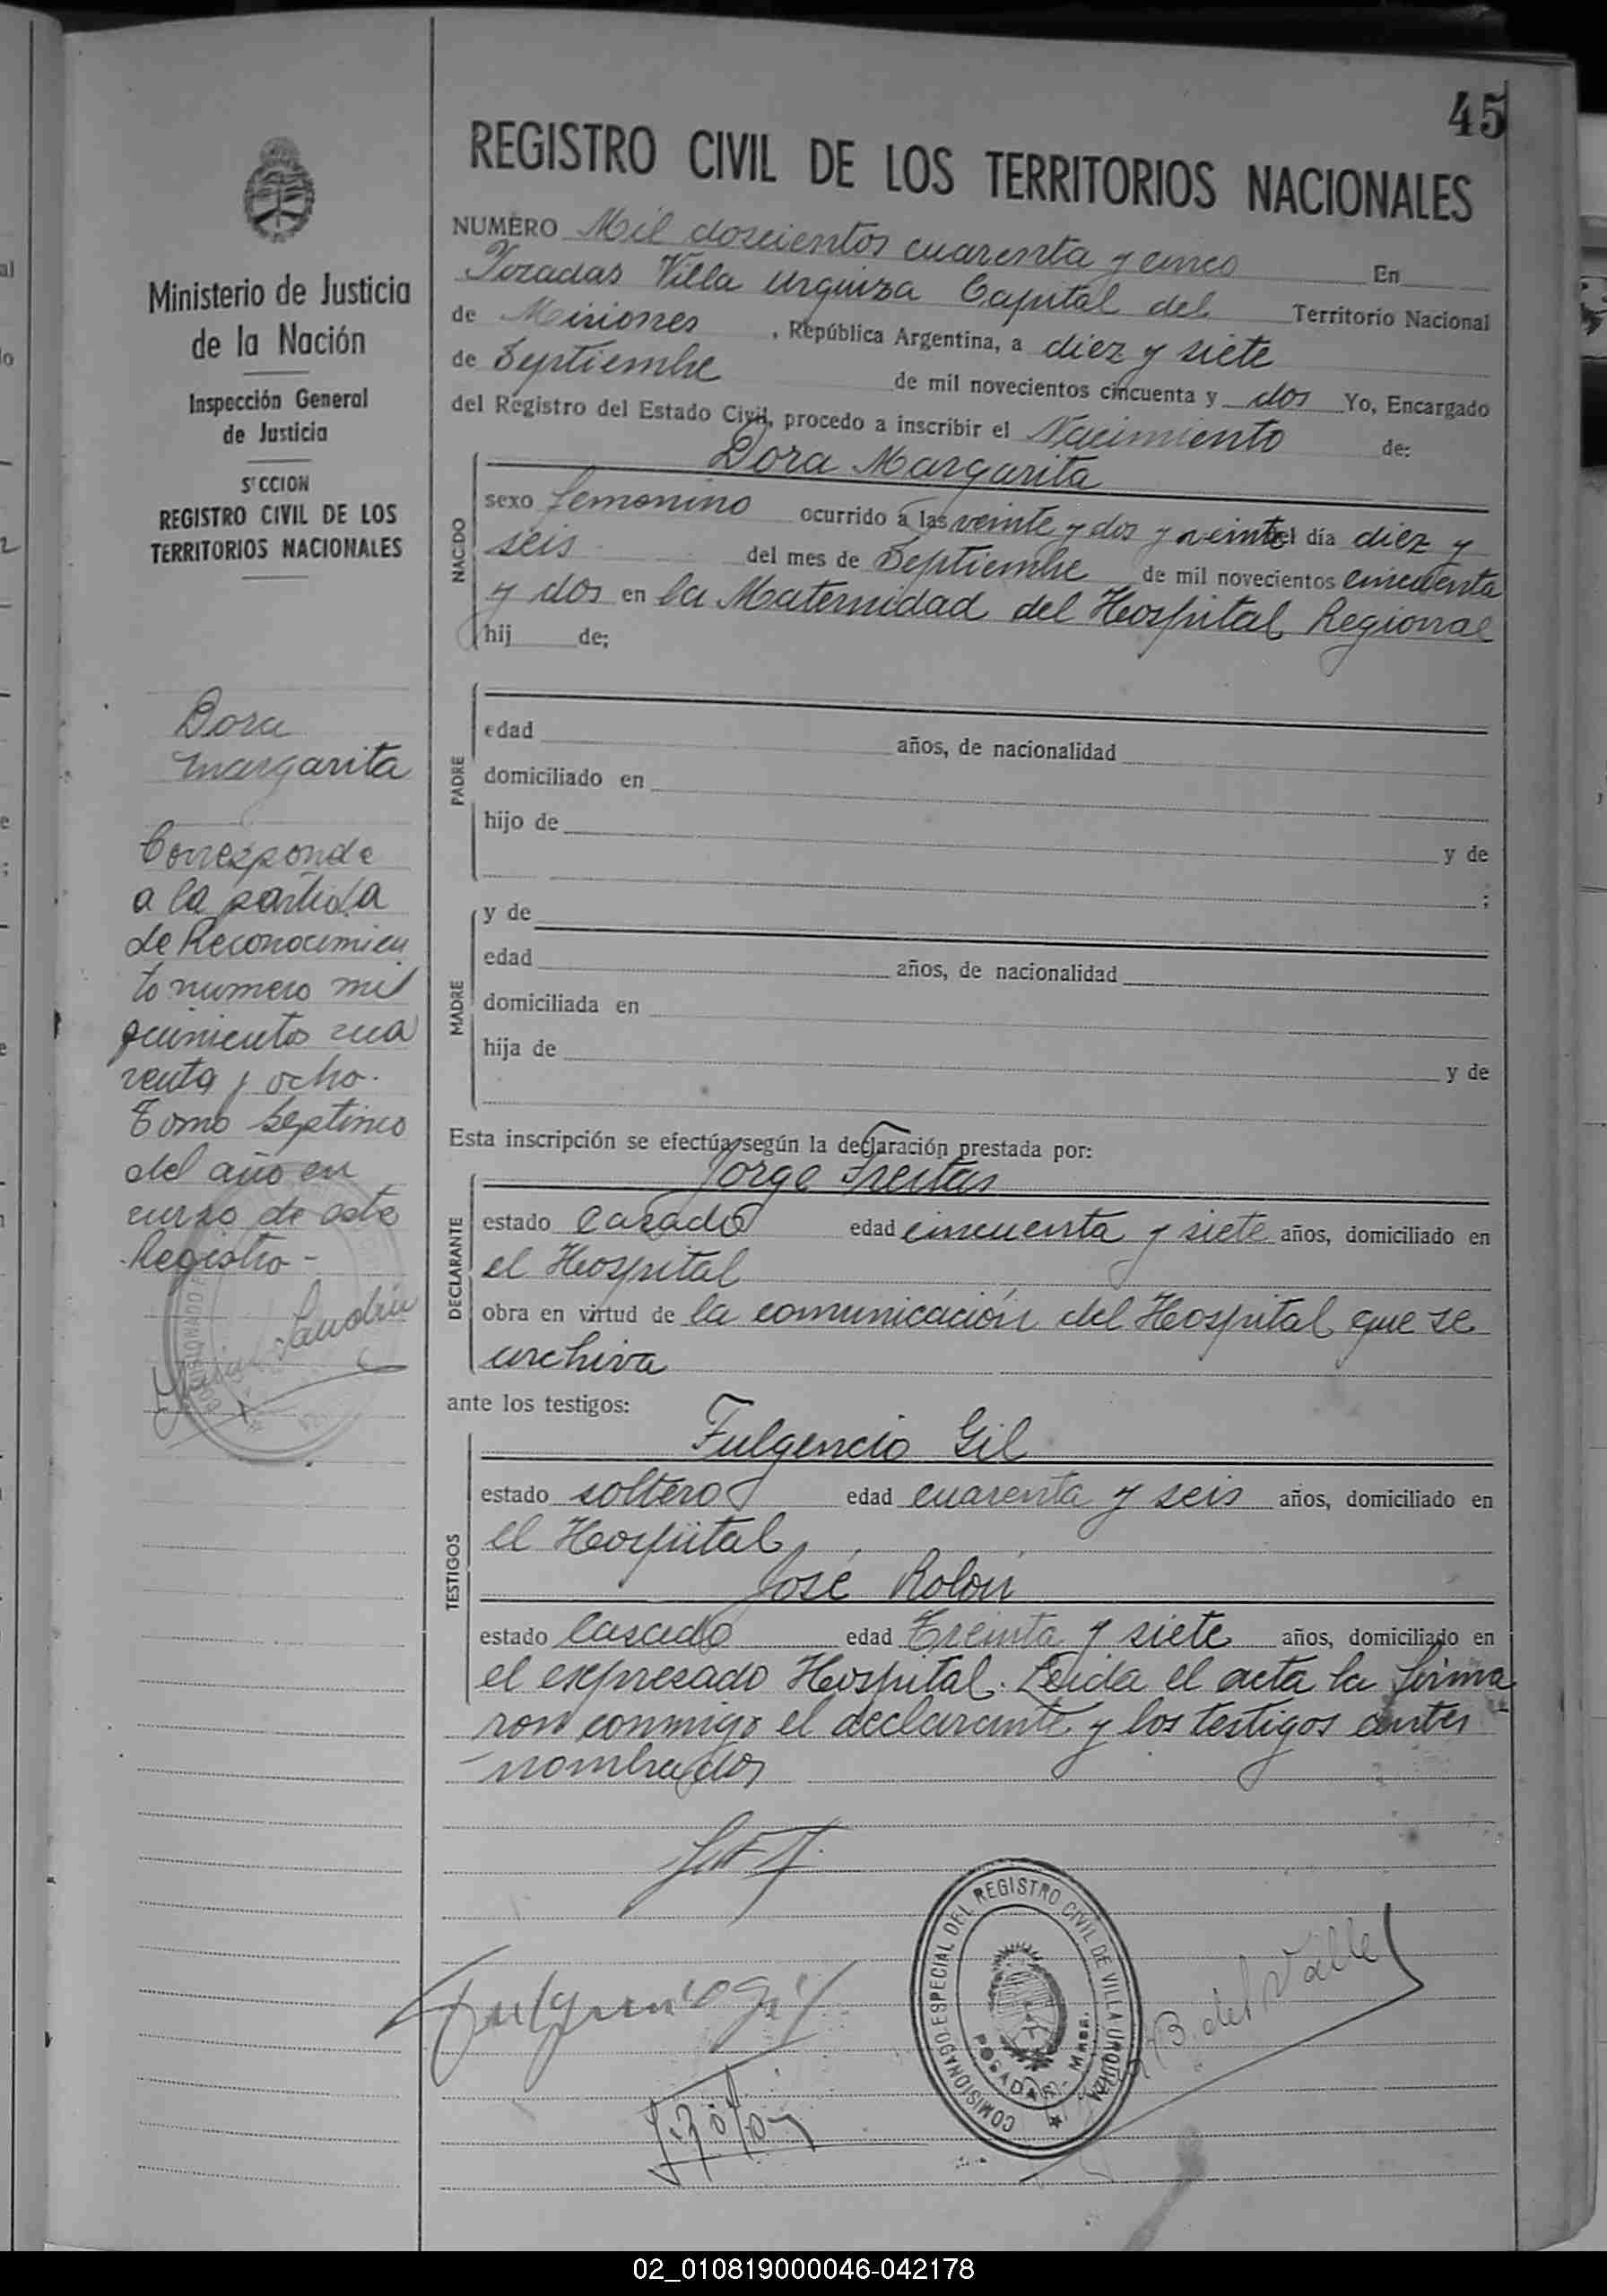 45
REGISTRO CIVIL DE LOS TERRITORIOS NACIONALES
Ministerio de Justicia
de la Nación
Inspección General
de Justicia
S'CCION
REGISTRO CIVIL DE LOS
TERRITORIOS NACIONALES
Dora
Margarita
Corresponde
a la partida
de Reconocimien
to numero mil
quinientos cua
renta y ocho.
Tomo Septimo
del año en
curso de este
Registro -
NUMERO Mil doscientos cuarenta y cinco En
Posadas Villa Urquiza Capital del Territorio Nacional
de Misiones, República Argentina, a diez y siete
de Septiembre de mil novecientos cincuenta y dos Yo, Encargado
del Registro del Estado Civil, procedo a inscribir el Nacimiento de:
Dora Margarita
NACIDO
sexo femenino ocurrido a las veinte y dos y veinte el día diez y
seis del mes de Septiembre de mil novecientos cincuenta
y dos en la Maternidad del Hospital Regional
hij de;
PADRE
edad años, de nacionalidad
domiciliado en
hijo de y de
;
MADRE
y de
edad años, de nacionalidad
domiciliada en
hija de y de
Esta inscripción se efectúa según la declaración prestada por:
Jorge Freitas
DECLARANTE
estado casado edad cincuenta y siete años, domiciliado en
el Hospital
obra en virtud de la comunicación del Hospital que se
archiva
ante los testigos:
Fulgencio Gil
TESTIGOS
estado soltero edad cuarenta y seis años, domiciliado en
el Hospital
José Rolón
estado casado edad Treinta y siete años, domiciliado en
el expresado Hospital. Leida el acta la firma
ron conmigo el declarante y los testigos antes
nombrados
Fulgencio Gil
COMISIONADO ESPECIAL DEL REGISTRO CIVIL DE VILLA URQUIZA
POSADAS - Mnes.
B. del Valle
02_010819000046-042178